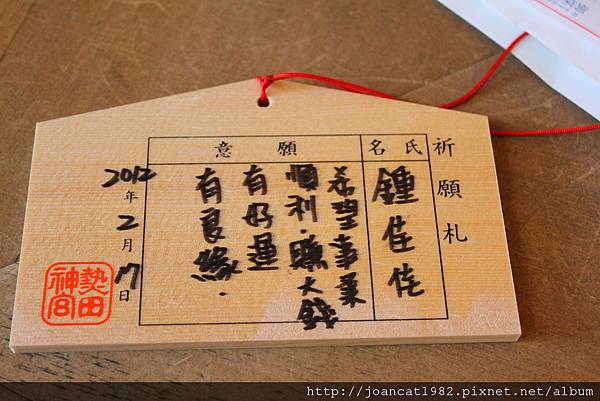 祈願札
氏名
鍾佳佳
願意
希望事業
順利.賺大錢
有好運
有良緣.
2012年2月17日
熱田
神宮
http://joancat1982.pixnet.net/album